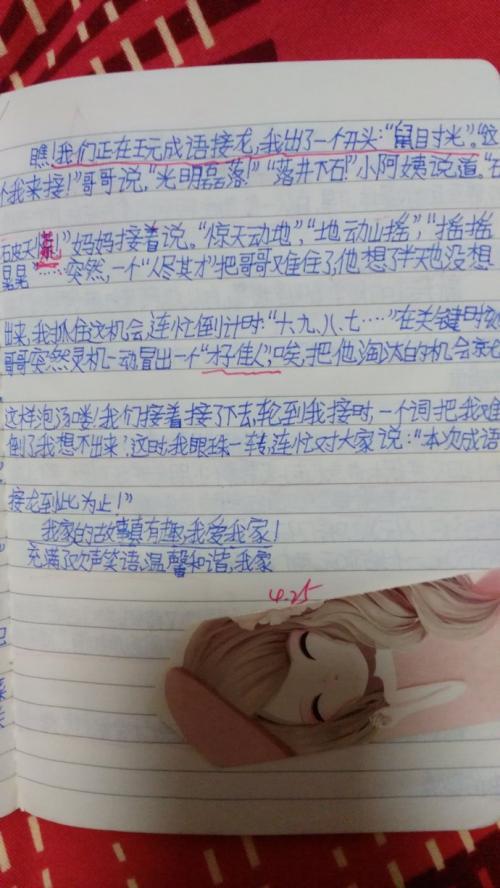 瞧!我们正在玩成语接龙,我出了一个开头:“鼠目寸光。”“这
个我来接!”哥哥说,“光明磊落!”“落井下石!”小阿姨说道。“石
石破天惊!”妈妈接着说。“惊天动地”,“地动山摇”,“摇摇
晃晃……突然,一个“人尽其才”把哥哥难住了,他想了半天也没想
出来,我抓住这机会,连忙倒计时:“十、九、八、七……”在关键时刻
哥哥突然灵机一动,冒出一个“才子佳人”,唉,把他淘汰的机会就
这样泡汤喽!我们接着接了下去,轮到我接时,一个词把我难
倒了,我想不出来,这时,我眼珠一转,连忙对大家说:“本次成语
接龙到此为止!”
我家的故事真有趣,我爱我家!
充满了欢声笑语,温馨和谐,我家
4.25